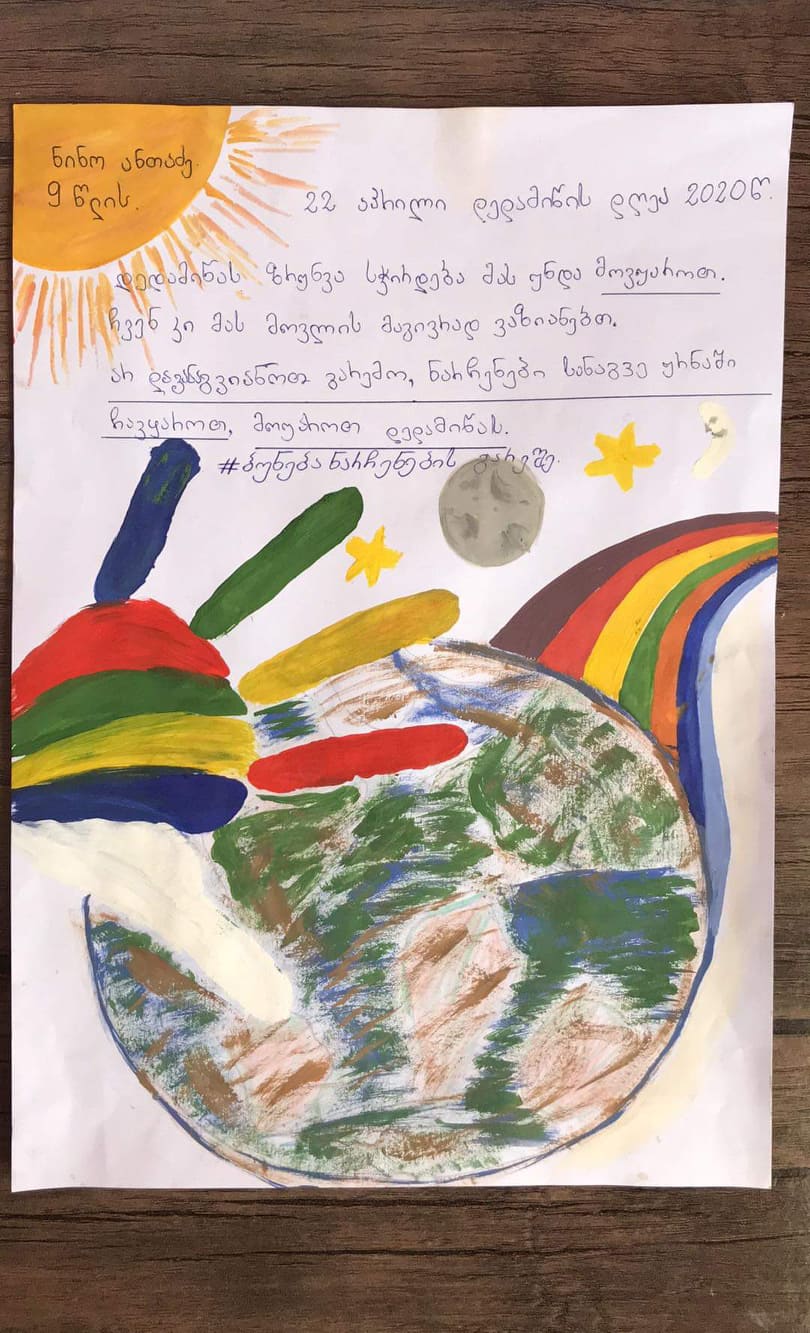 ნინო ანთაძე.
9 წლის.
22 აპრილი დედამიწის დღეა 2020წ.
დედამიწას ზრუნვა სჭირდება მას უნდა მოვუაროთ.
ჩვენ კი მას მოვლის მაგივრად ვაზიანებთ.
არ დავანაგვიანოთ გარემო, ნარჩენები სანაგვე ურნაში
ჩავყაროთ, მოვუაროთ დედამიწას.
#ბუნებანარჩენების გარეშე.